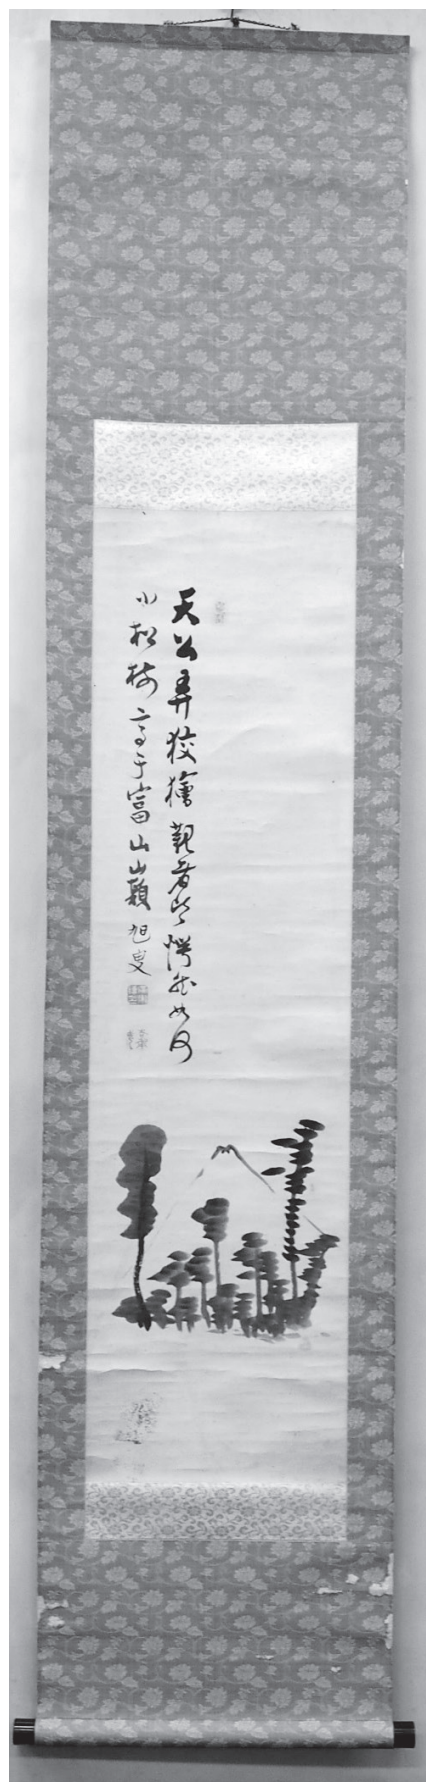 天公弄狡獪観者皆愕然如何
小松樹高于富山巓旭叟